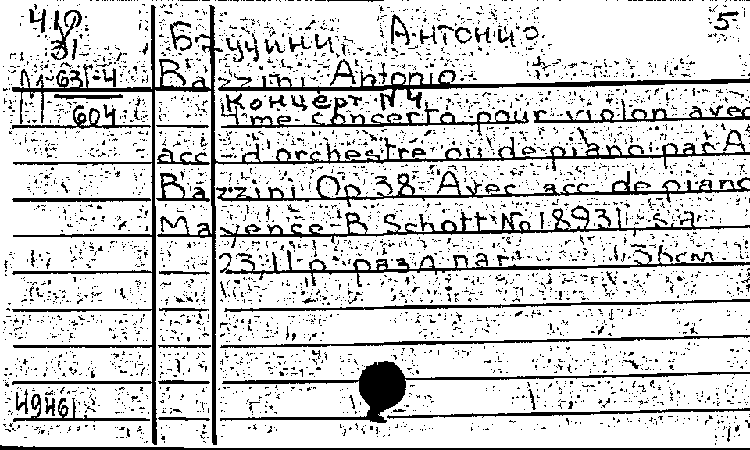 419 Баццини, Антонио 5
31
М 631-4 Bazzini Antonio
604 Концерт N 4
4me concerto pour violon avec
acc-d'orchestre ou de piano par A
Bazzini Op 38. Avec acc de piano
Mayence-B Schott No 18931, s a
23, 11 p. разд паг 36cm
49461